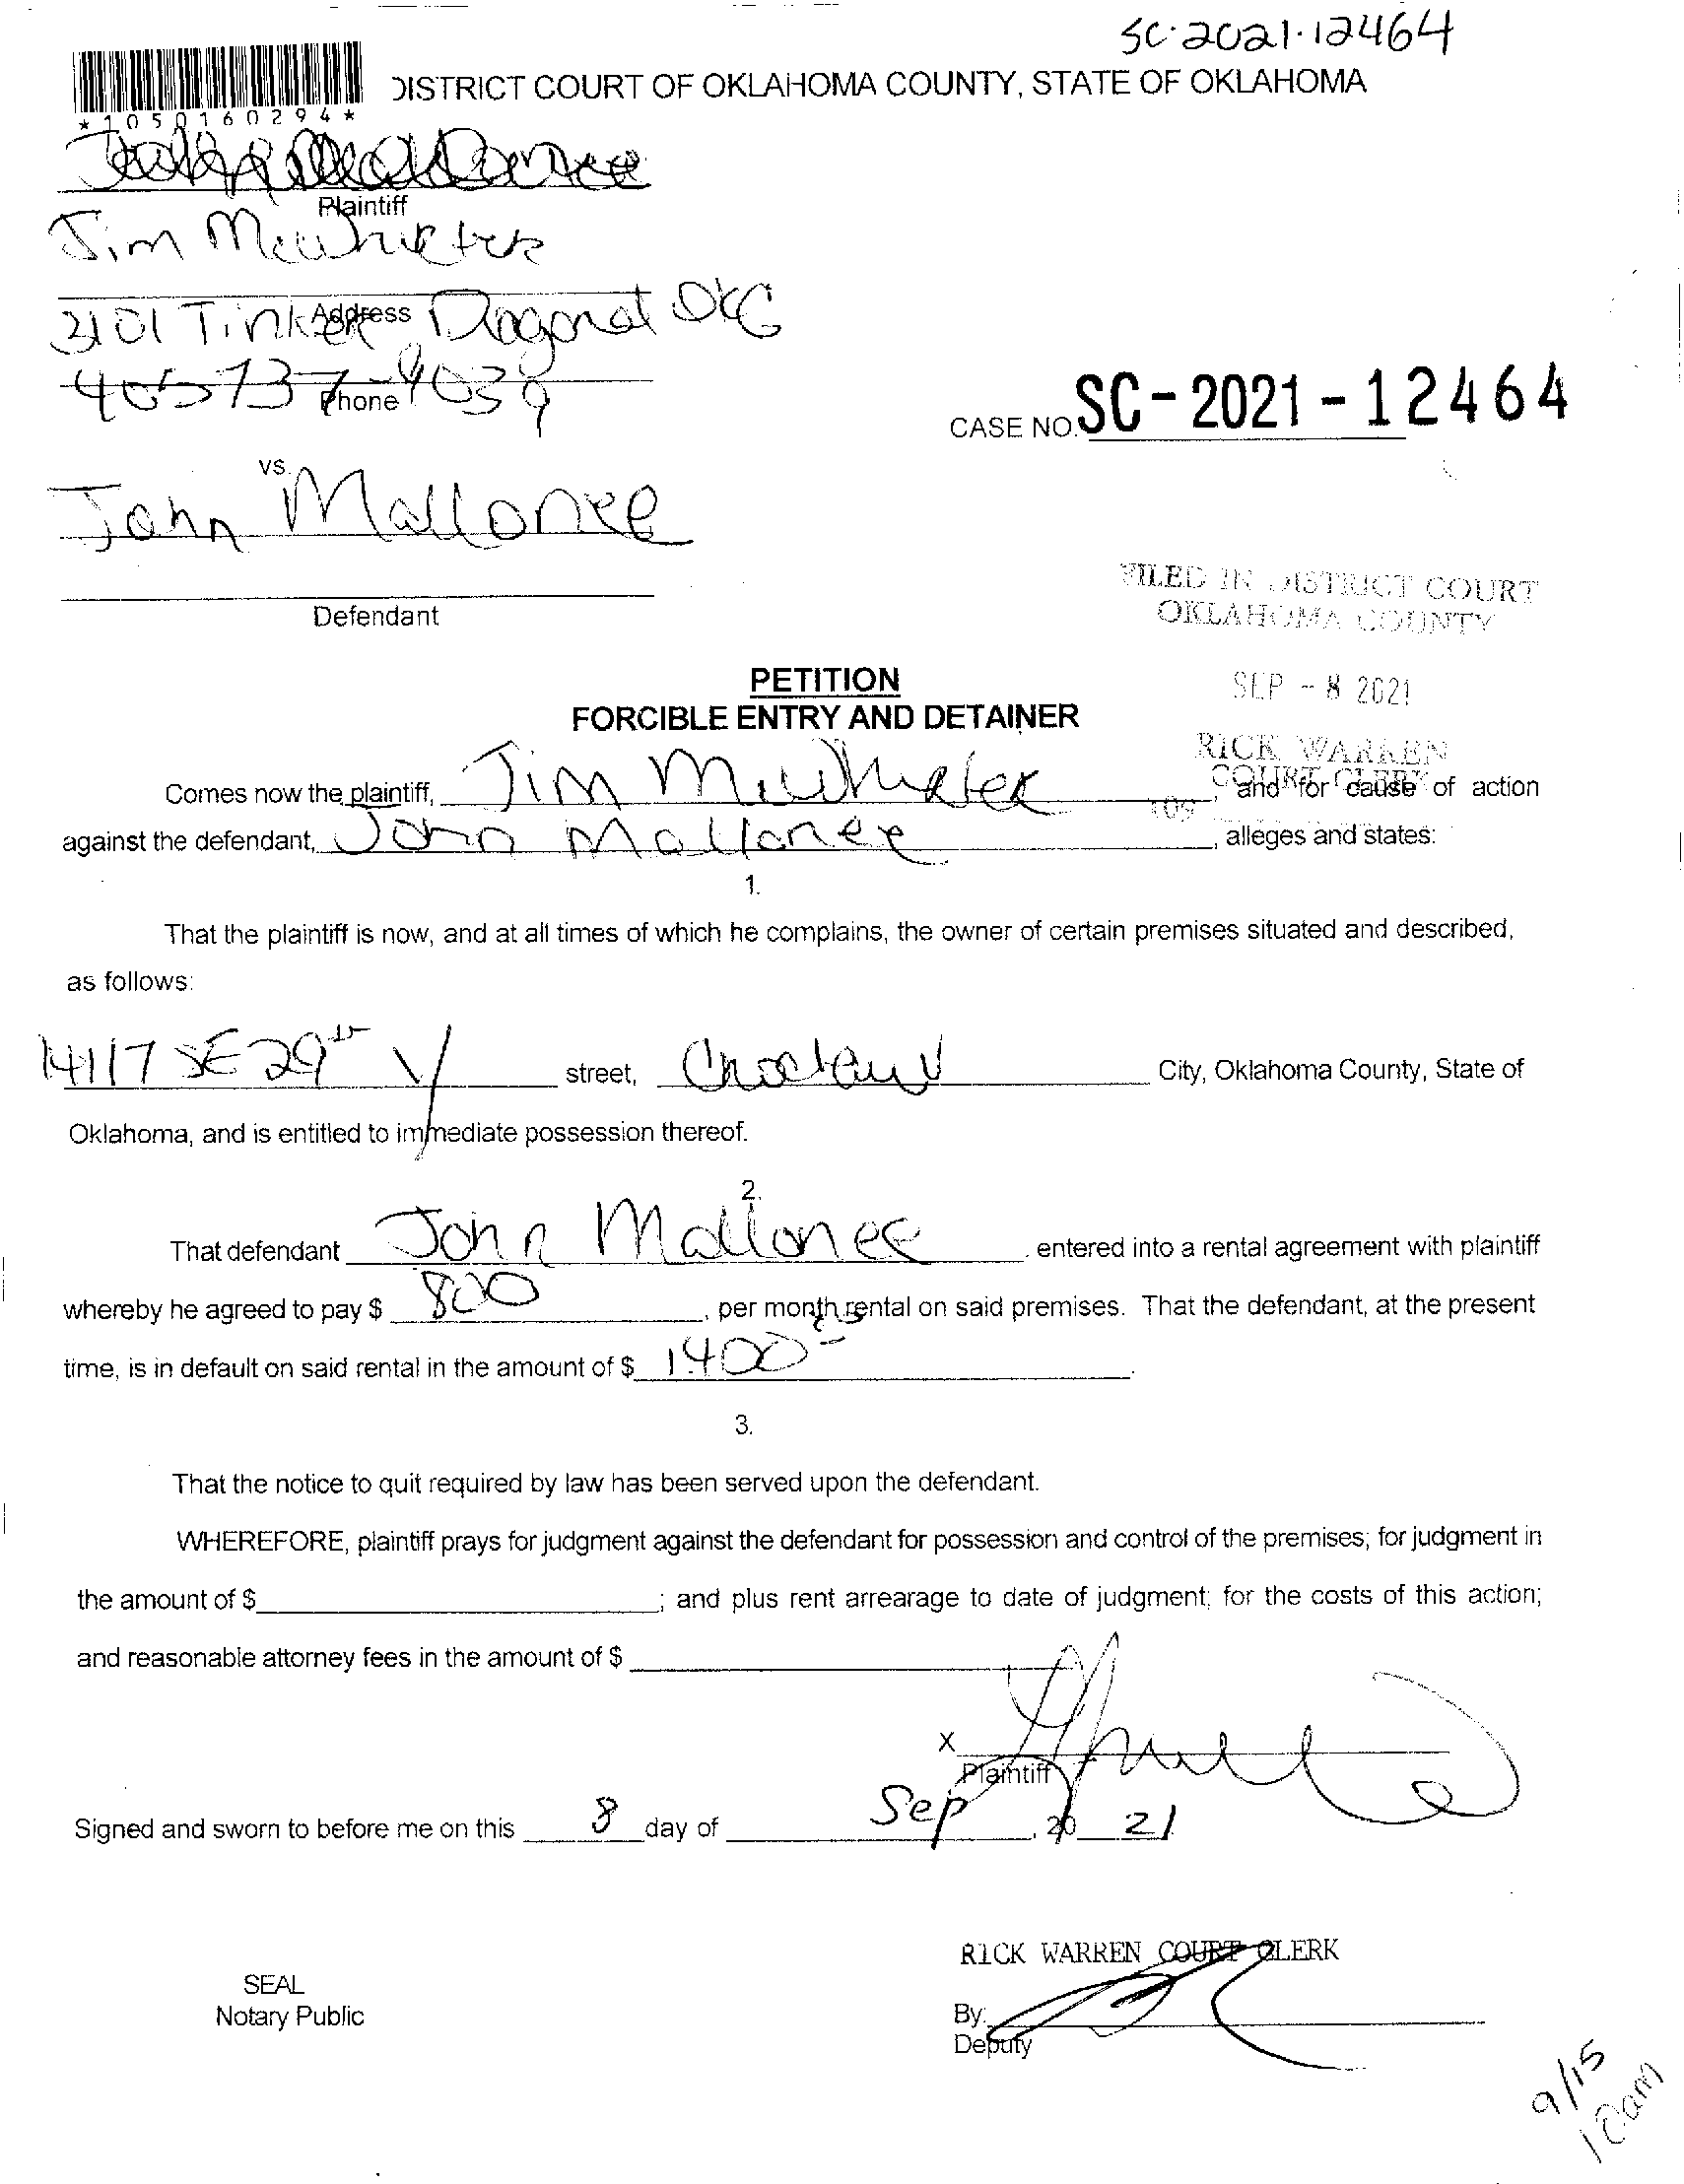 SC-2021-12464
DISTRICT COURT OF OKLAHOMA COUNTY, STATE OF OKLAHOMA
*1050160294*
Plaintiff
Jim McWhirter
Address
2101 Tinker Diagonal OKC
405 737-4039
Phone
CASE NO. SC-2021-12464
vs.
John Mallonee
Defendant
FILED IN DISTRICT COURT
OKLAHOMA COUNTY
SEP - 8 2021
RICK WARREN
COURT CLERK
109
PETITION
FORCIBLE ENTRY AND DETAINER
Comes now the plaintiff, Jim McWhirter, and for cause of action
against the defendant, John Mallonee, alleges and states:
1.
That the plaintiff is now, and at all times of which he complains, the owner of certain premises situated and described,
as follows:
14117 SE 29th street, Choctaw City, Oklahoma County, State of
Oklahoma, and is entitled to immediate possession thereof.
2.
That defendant John Mallonee entered into a rental agreement with plaintiff
whereby he agreed to pay $ 800, per month rental on said premises. That the defendant, at the present
time, is in default on said rental in the amount of $ 1400-.
3.
That the notice to quit required by law has been served upon the defendant.
WHEREFORE, plaintiff prays for judgment against the defendant for possession and control of the premises; for judgment in
the amount of $ ; and plus rent arrearage to date of judgment; for the costs of this action;
and reasonable attorney fees in the amount of $
X
Plaintiff
Signed and sworn to before me on this 8 day of Sep, 20 21
RICK WARREN COURT CLERK
SEAL
Notary Public
By:
Deputy
9/15
10am